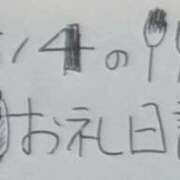 /4の
お礼日